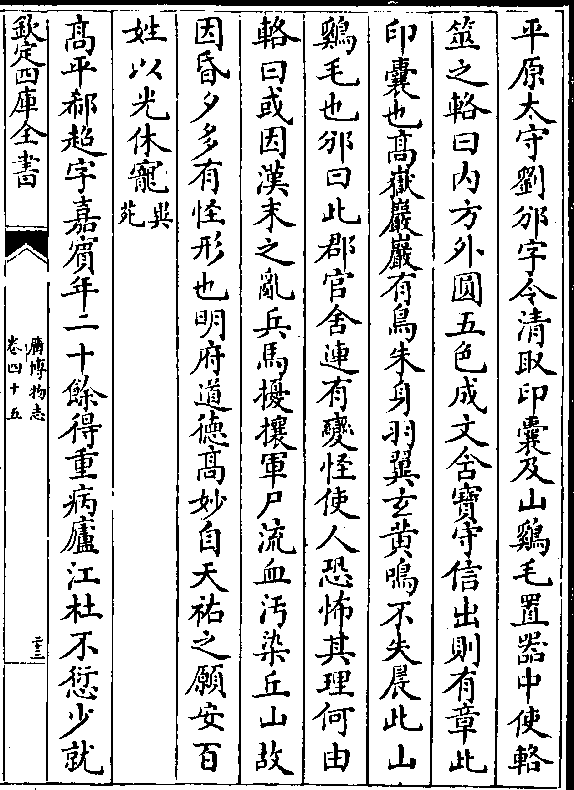 平原太守劉邠字令清取印囊及山鷄毛置器中使輅
筮之輅曰內方外圓五色成文含寶守信出則有章此
印囊也高嶽巖巖有鳥朱身羽翼玄黄鳴不失晨此山
鷄毛也邠曰此郡官舍連有變怪使人恐怖其理何由
輅曰或因漢末之亂兵馬擾攘軍尸流血汚染丘山故
因昏夕多有怪形也明府道德高妙自天祐之願安百
姓以光休寵異苑
高平郗超字嘉賓年二十餘得重病廬江杜不愆少就
欽定四庫全書
廣博物志
卷四十五
二十三